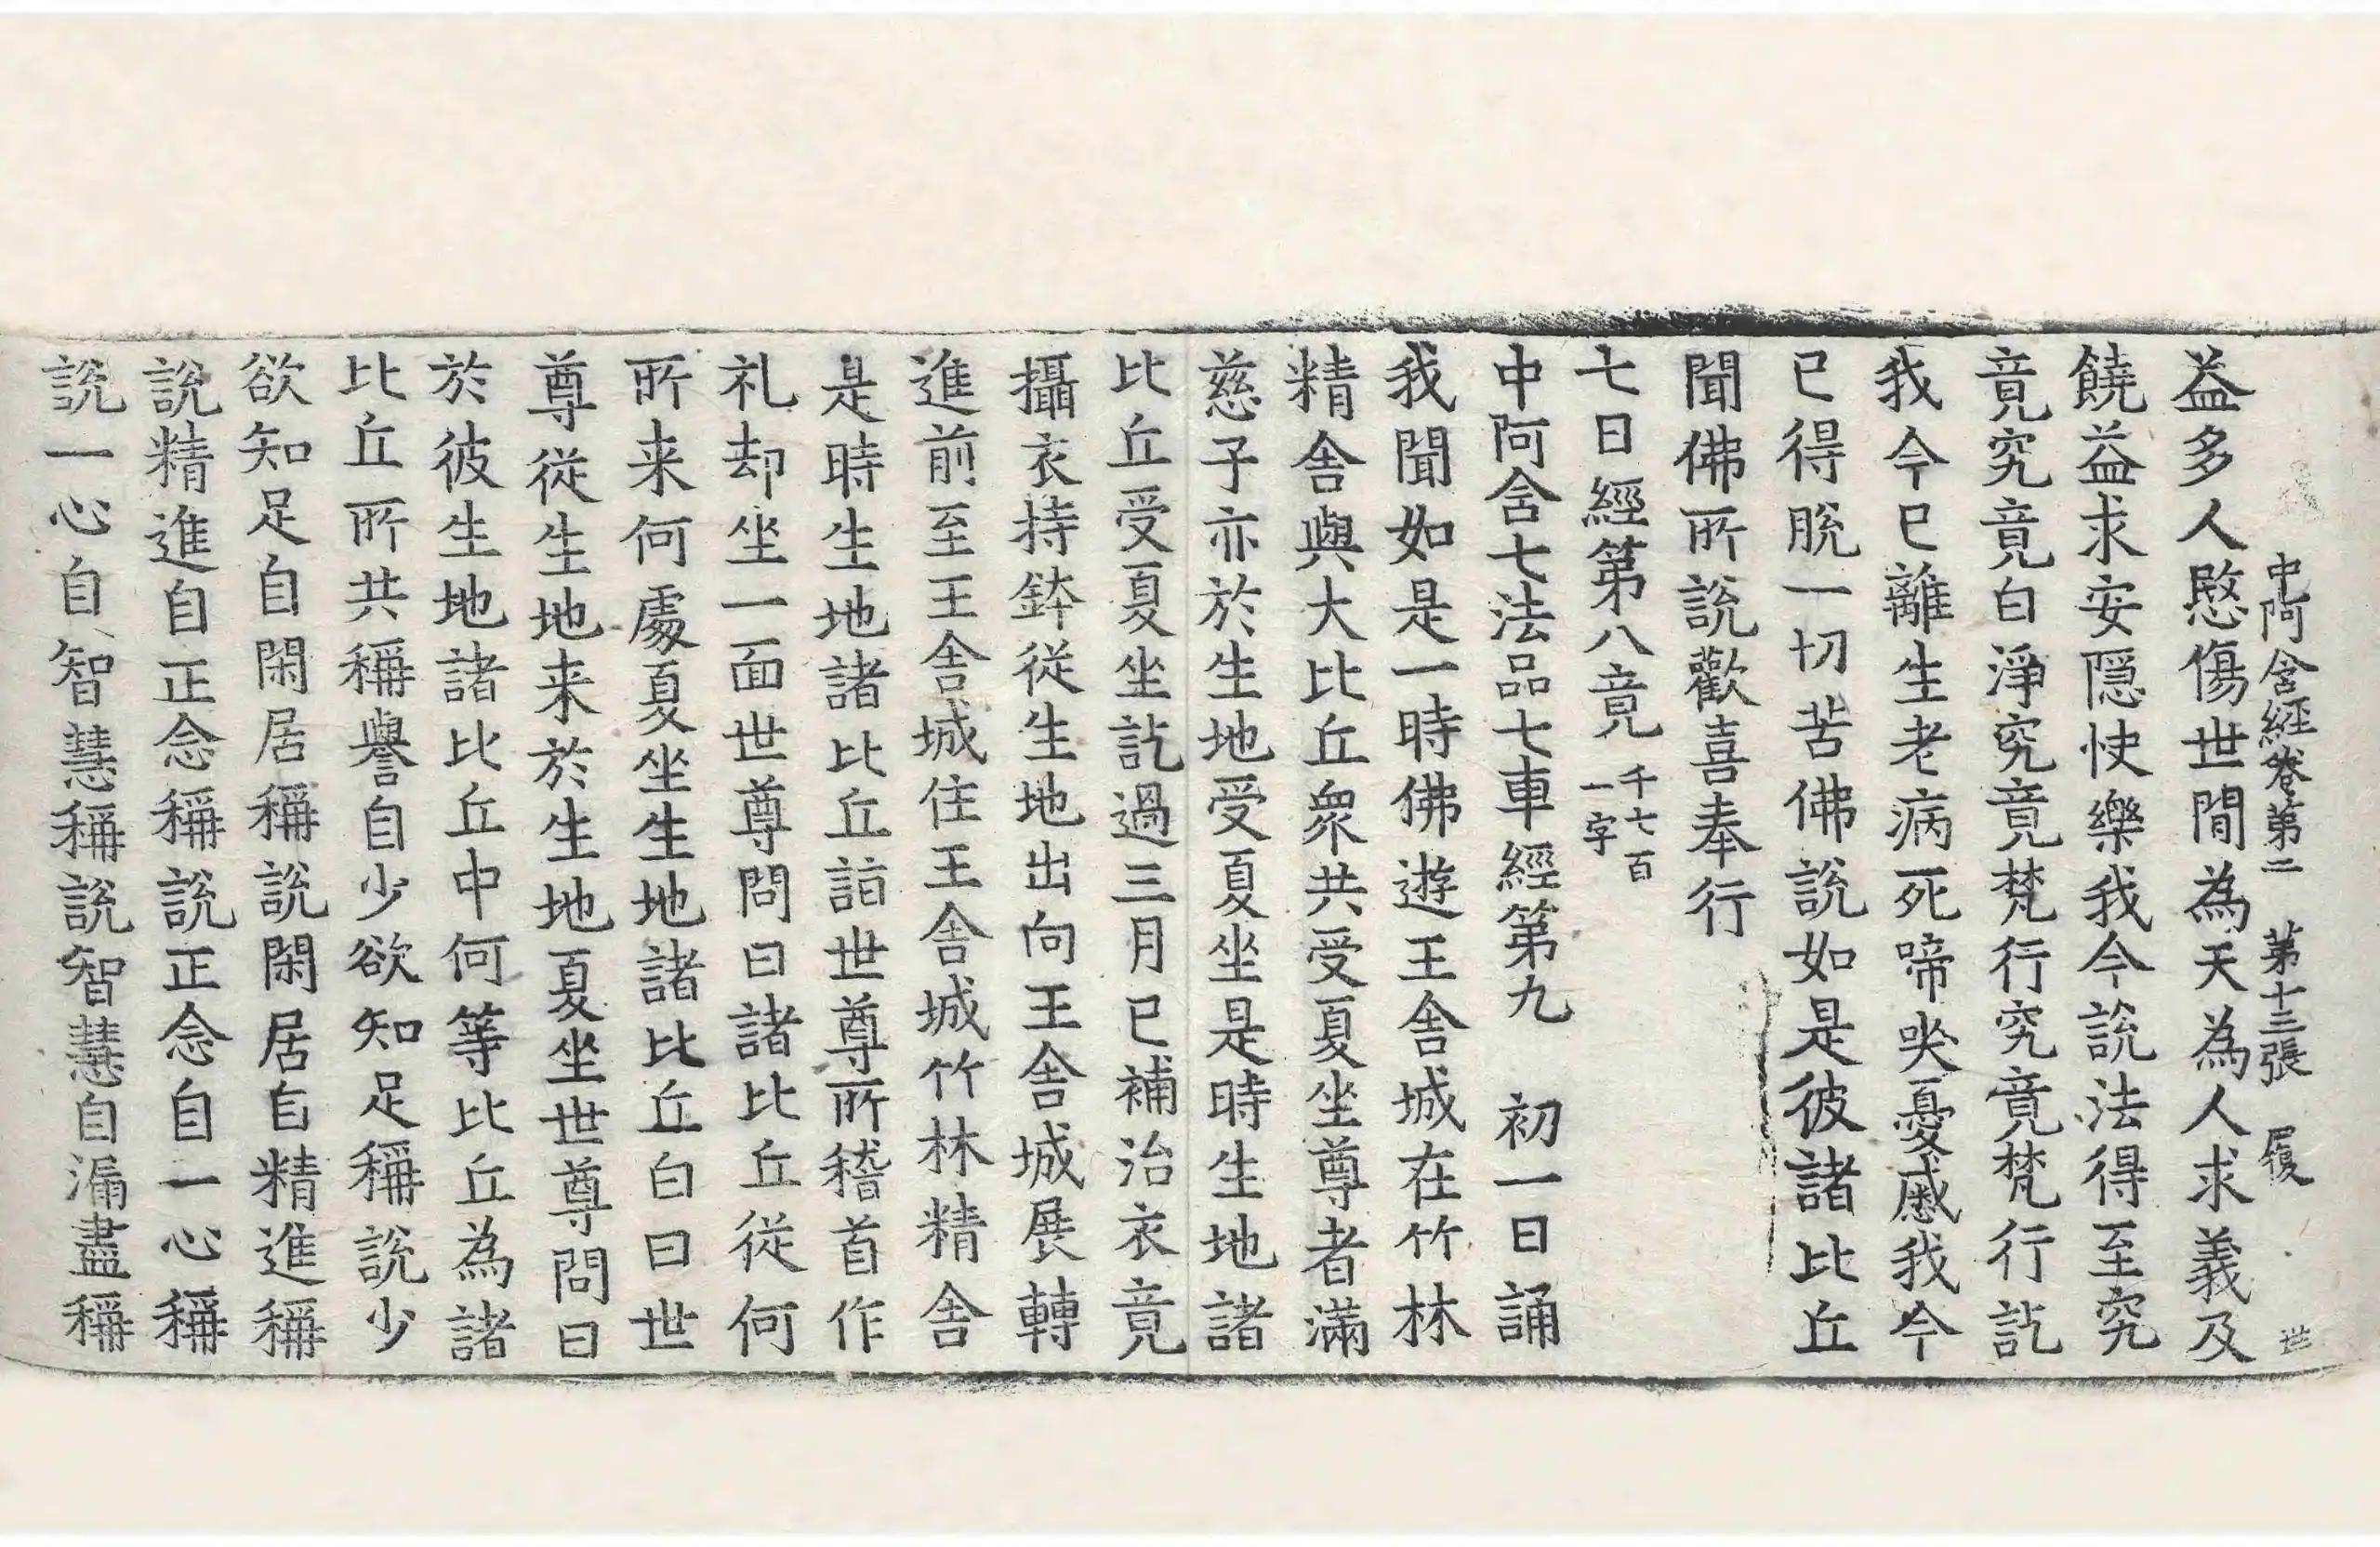 中阿含經卷第二　第十三張　履
益多人愍傷世間為天為人求義及
饒益求安隱快樂我今說法得至究
竟究竟白淨究竟梵行究竟梵行訖
我今已離生老病死啼哭憂慼我今
已得脫一切苦佛說如是彼諸比丘
聞佛所說歡喜奉行
七日經第八竟千七百一字
中阿含七法品七車經第九　初一日誦
我聞如是一時佛遊王舍城在竹林
精舍與大比丘衆共受夏坐尊者滿
慈子亦於生地受夏坐是時生地諸
比丘受夏坐訖過三月已補治衣竟
攝衣持鉢從生地出向王舍城展轉
進前至王舍城住王舍城竹林精舍
是時生地諸比丘詣世尊所稽首作
礼却坐一面世尊問曰諸比丘從何
所来何處夏坐生地諸比丘白曰世
尊從生地来於生地夏坐世尊問曰
於彼生地諸比丘中何等比丘為諸
比丘所共稱譽自少欲知足稱說少
欲知足自閑居稱說閑居自精進稱
說精進自正念稱說正念自一心稱
說一心自智慧稱說智慧自漏盡稱